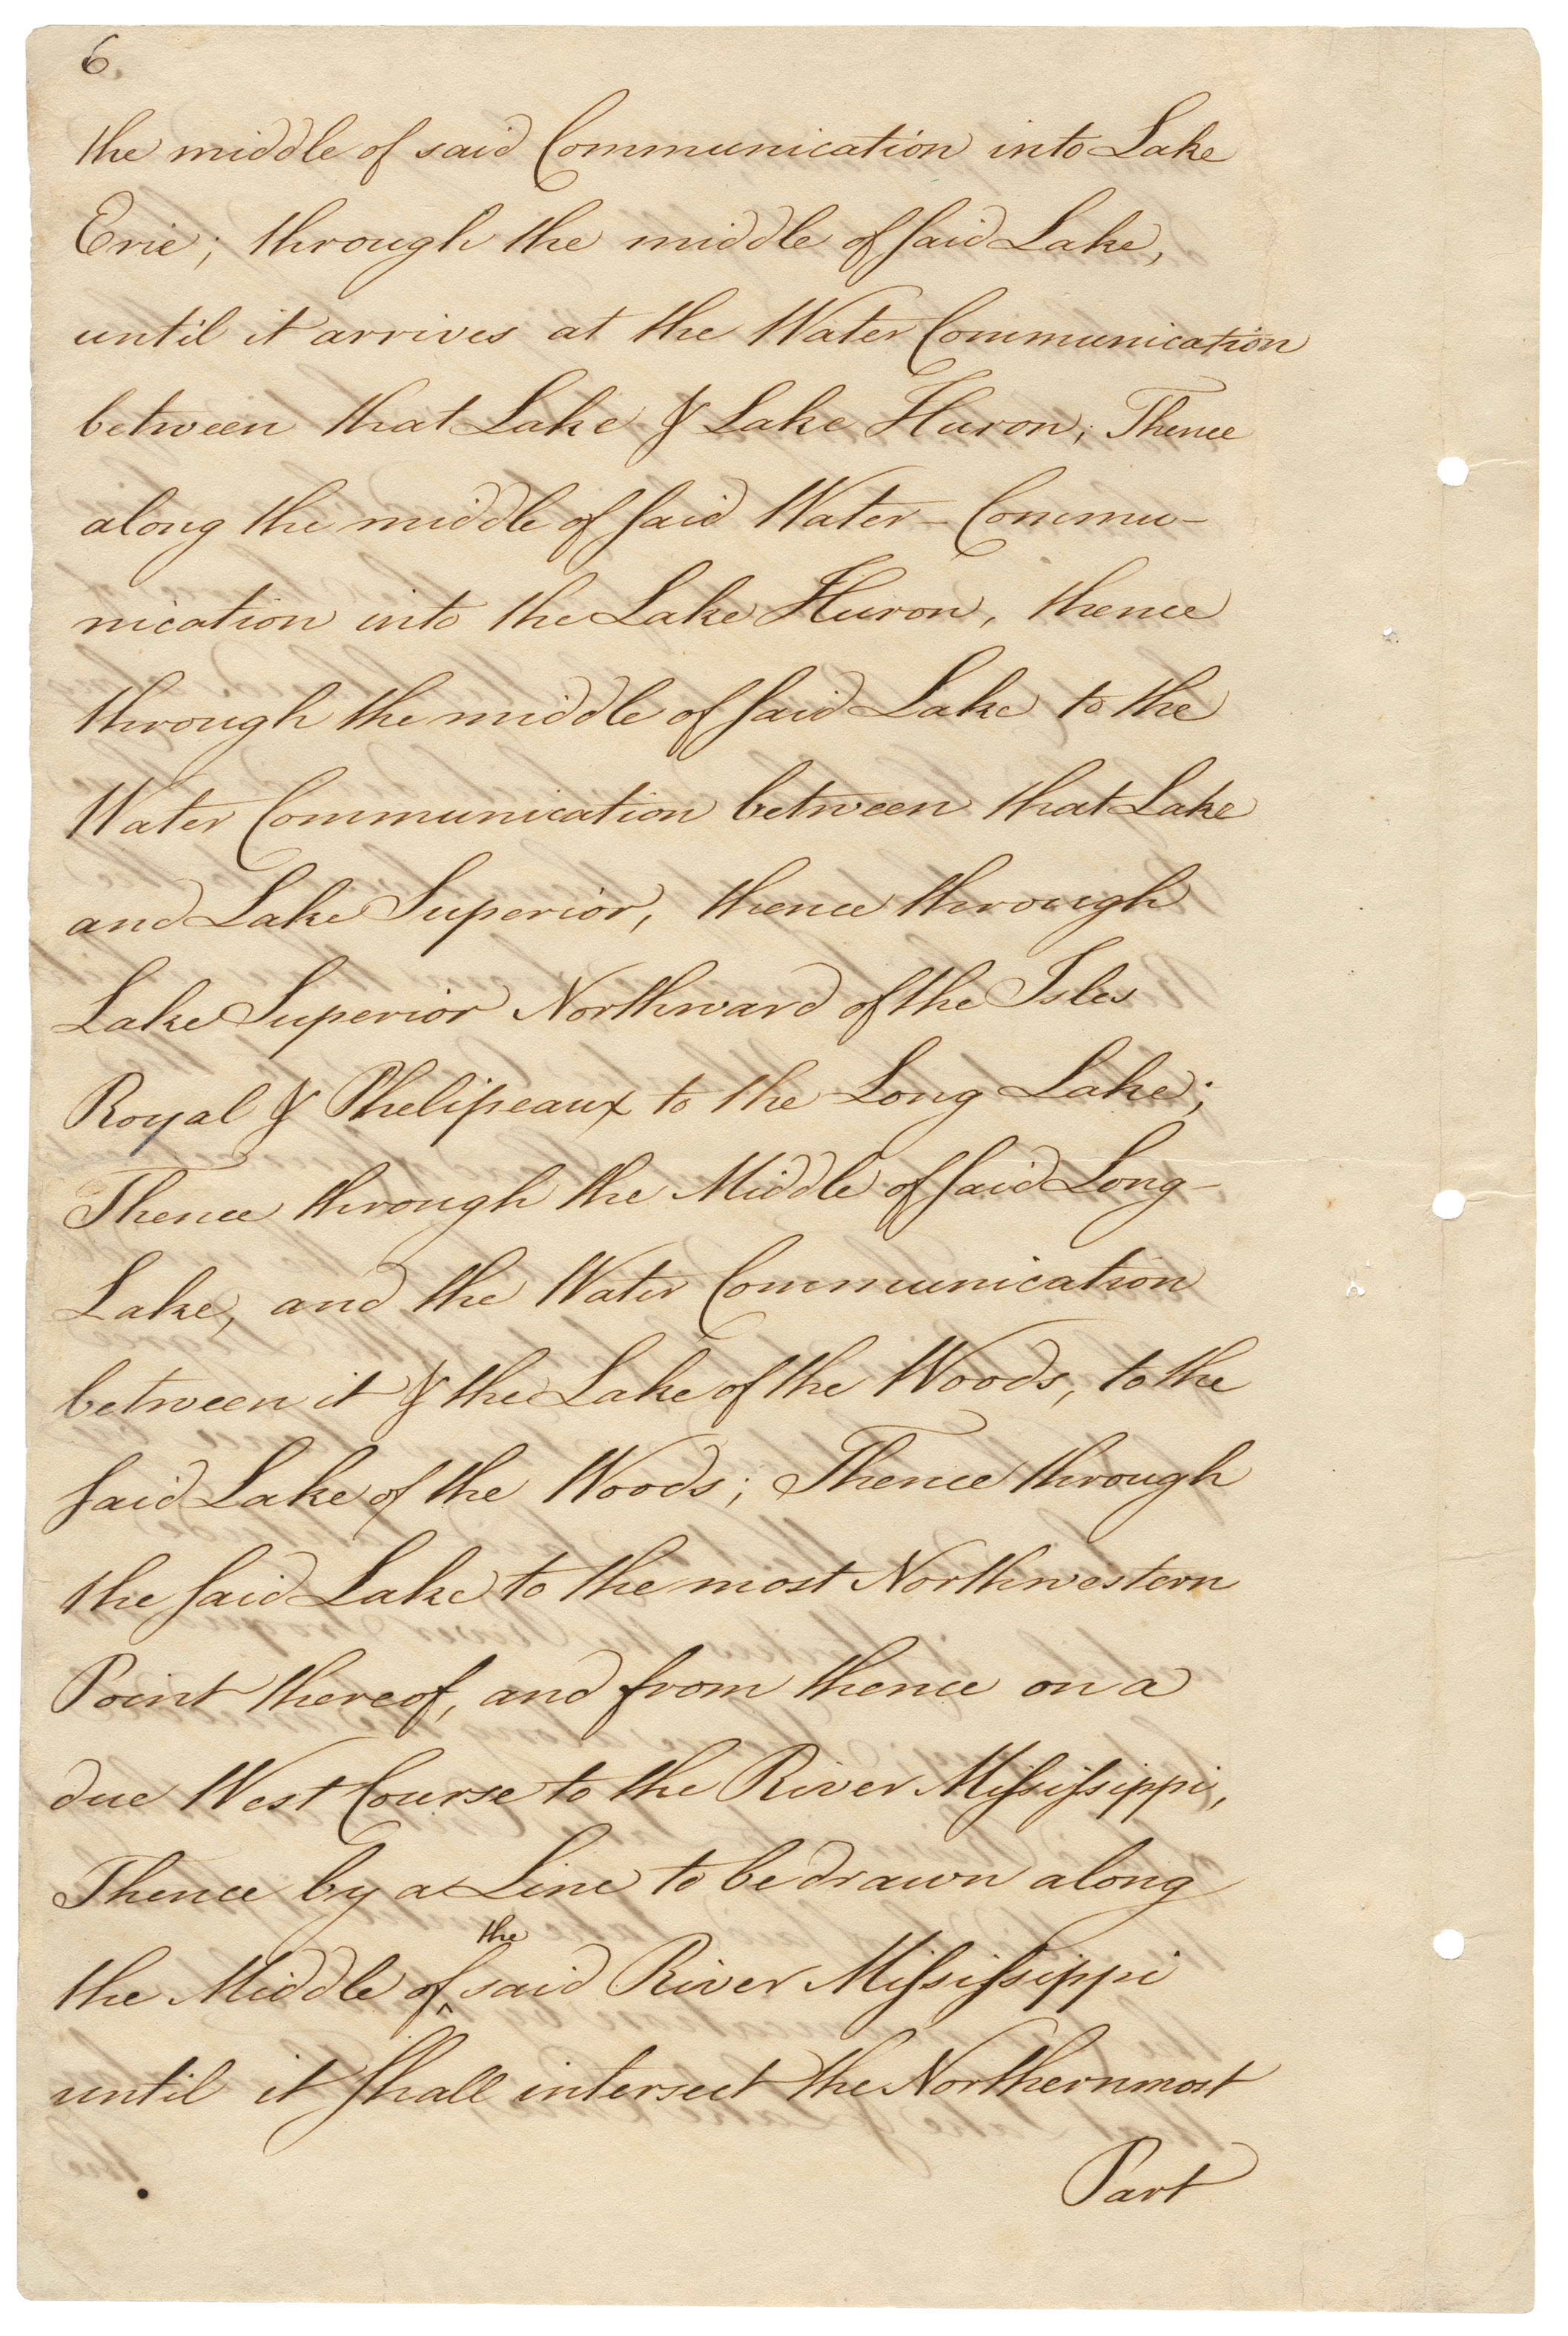 6.
the middle of said Communication into Lake
Erie; through the middle of said Lake,
until it arrives at the Water Communication
between that Lake & Lake Huron; Thence
along the middle of said Water-Commu-
nication into the Lake Huron, thence
through the middle of said Lake to the
Water Communication between that Lake
and Lake Superior, thence through
Lake Superior Northward of the Isles
Royal & Phelipeaux to the Long Lake;
Thence through the Middle of said Long-
Lake, and the Water Communication
between it & the Lake of the Woods, to the
said Lake of the Woods; Thence through
the said Lake to the most Northwestern
Point thereof, and from thence on a
due West Course to the River Mississippi,
Thence by a Line to be drawn along
the Middle of the said River Mississippi
until it shall intersect the Northernmost
Part